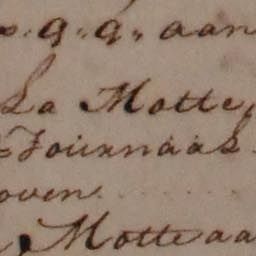 g. g. aan
La Motte,
Journaal
oven
Motte aa